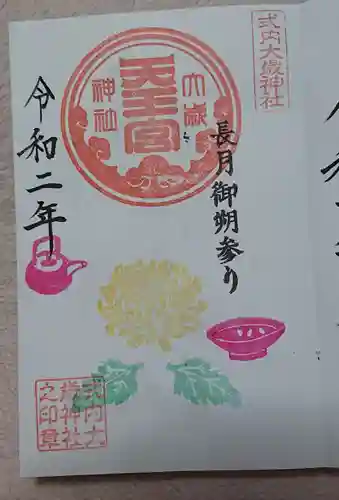 式内大歳神社
大歳
天王宮
神社
長月御朔参り
令和二年
式内大
歳神社
之印章